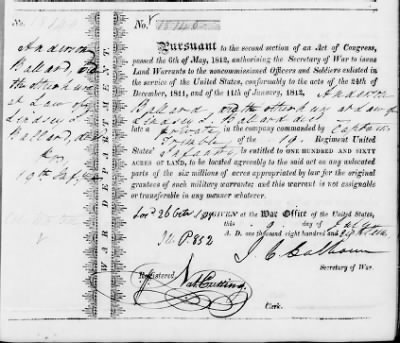 No.
Anderson
Ballard, and
the other heirs
at Law of
Lindsey S.
Ballard, decd
WAR DEPARTMENT.
No.
Pursuant to the second section of an Act of Congress,
passed the 6th of May, 1812, authorising the Secretary of War to issue
Land Warrants to the noncommissioned Officers and Soldiers enlisted in
the service of the United States, conformably to the acts of the 24th of
December, 1811, and of the 11th of January, 1812, Anderson
Ballard and the other heirs at Law of
Lindsey S. Ballard decd
late a private in the company commanded by Captain
Trimble of the 19. Regiment United
States' Infantry is entitled to ONE HUNDRED AND SIXTY
ACRES OF LAND, to be located agreeably to the said act on any unlocated
parts of the six millions of acres appropriated by law for the original
grantees of such military warrants; and this warrant is not assignable
or transferable in any manner whatever.
GIVEN at the War Office of the United States,
this 9 day of July
A. D. one thousand eight hundred and
P 852
J. C. Calhoun
Secretary of War.
Registered Nat. Cutting
Clerk.